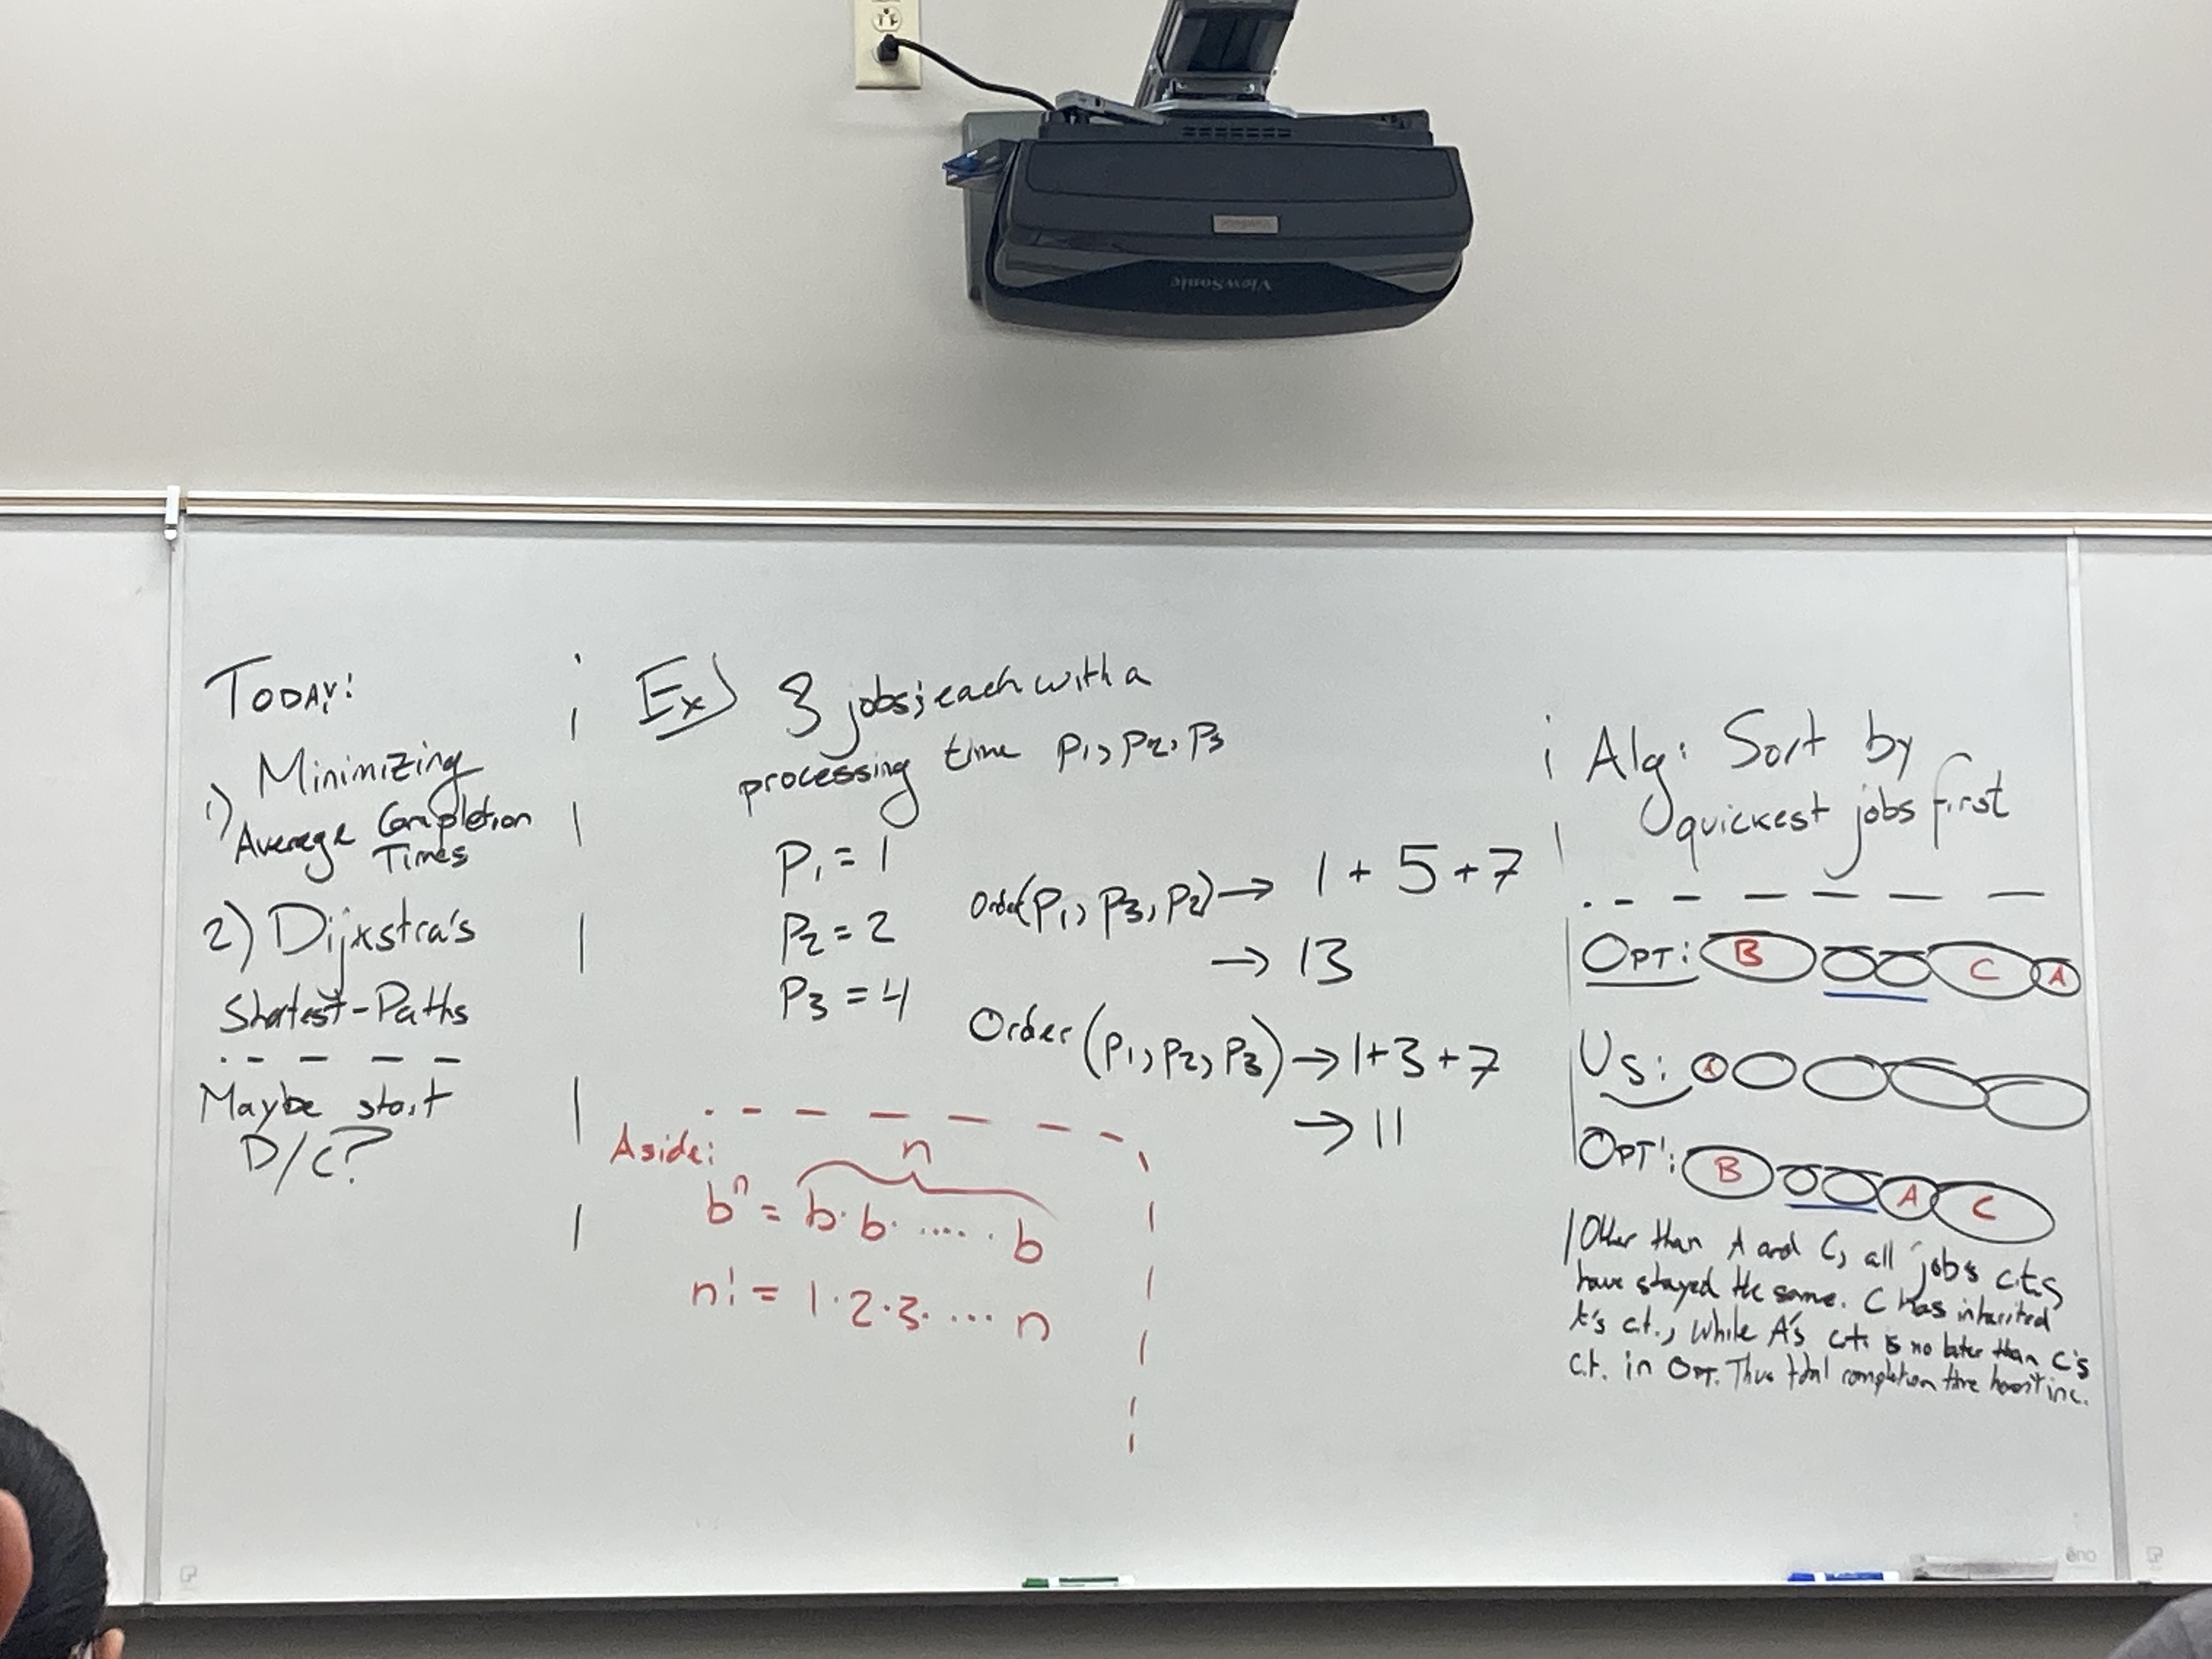 ViewSonic
TODAY:
1) Minimizing
Average Completion
Times
2) Dijkstra's
Shortest-Paths
Maybe start
D/C?
Ex) 3 jobs; each with a
processing time P1, P2, P3
P1 = 1
P2 = 2
P3 = 4
Order(P1, P3, P2) → 1 + 5 + 7
→ 13
Order (P1, P2, P3) → 1+3+7
→ 11
Aside:
n
b^n = b · b · ..... · b
n! = 1 · 2 · 3 · .... n
Alg: Sort by
quickest jobs first
OPT: B C A
Us: A
OPT': B A C
Other than A and C, all jobs c.t.s
have stayed the same. C has inherited
A's c.t., while A's c.t. is no later than C's
c.t. in OPT. Thus total completion time hasn't inc.
eno